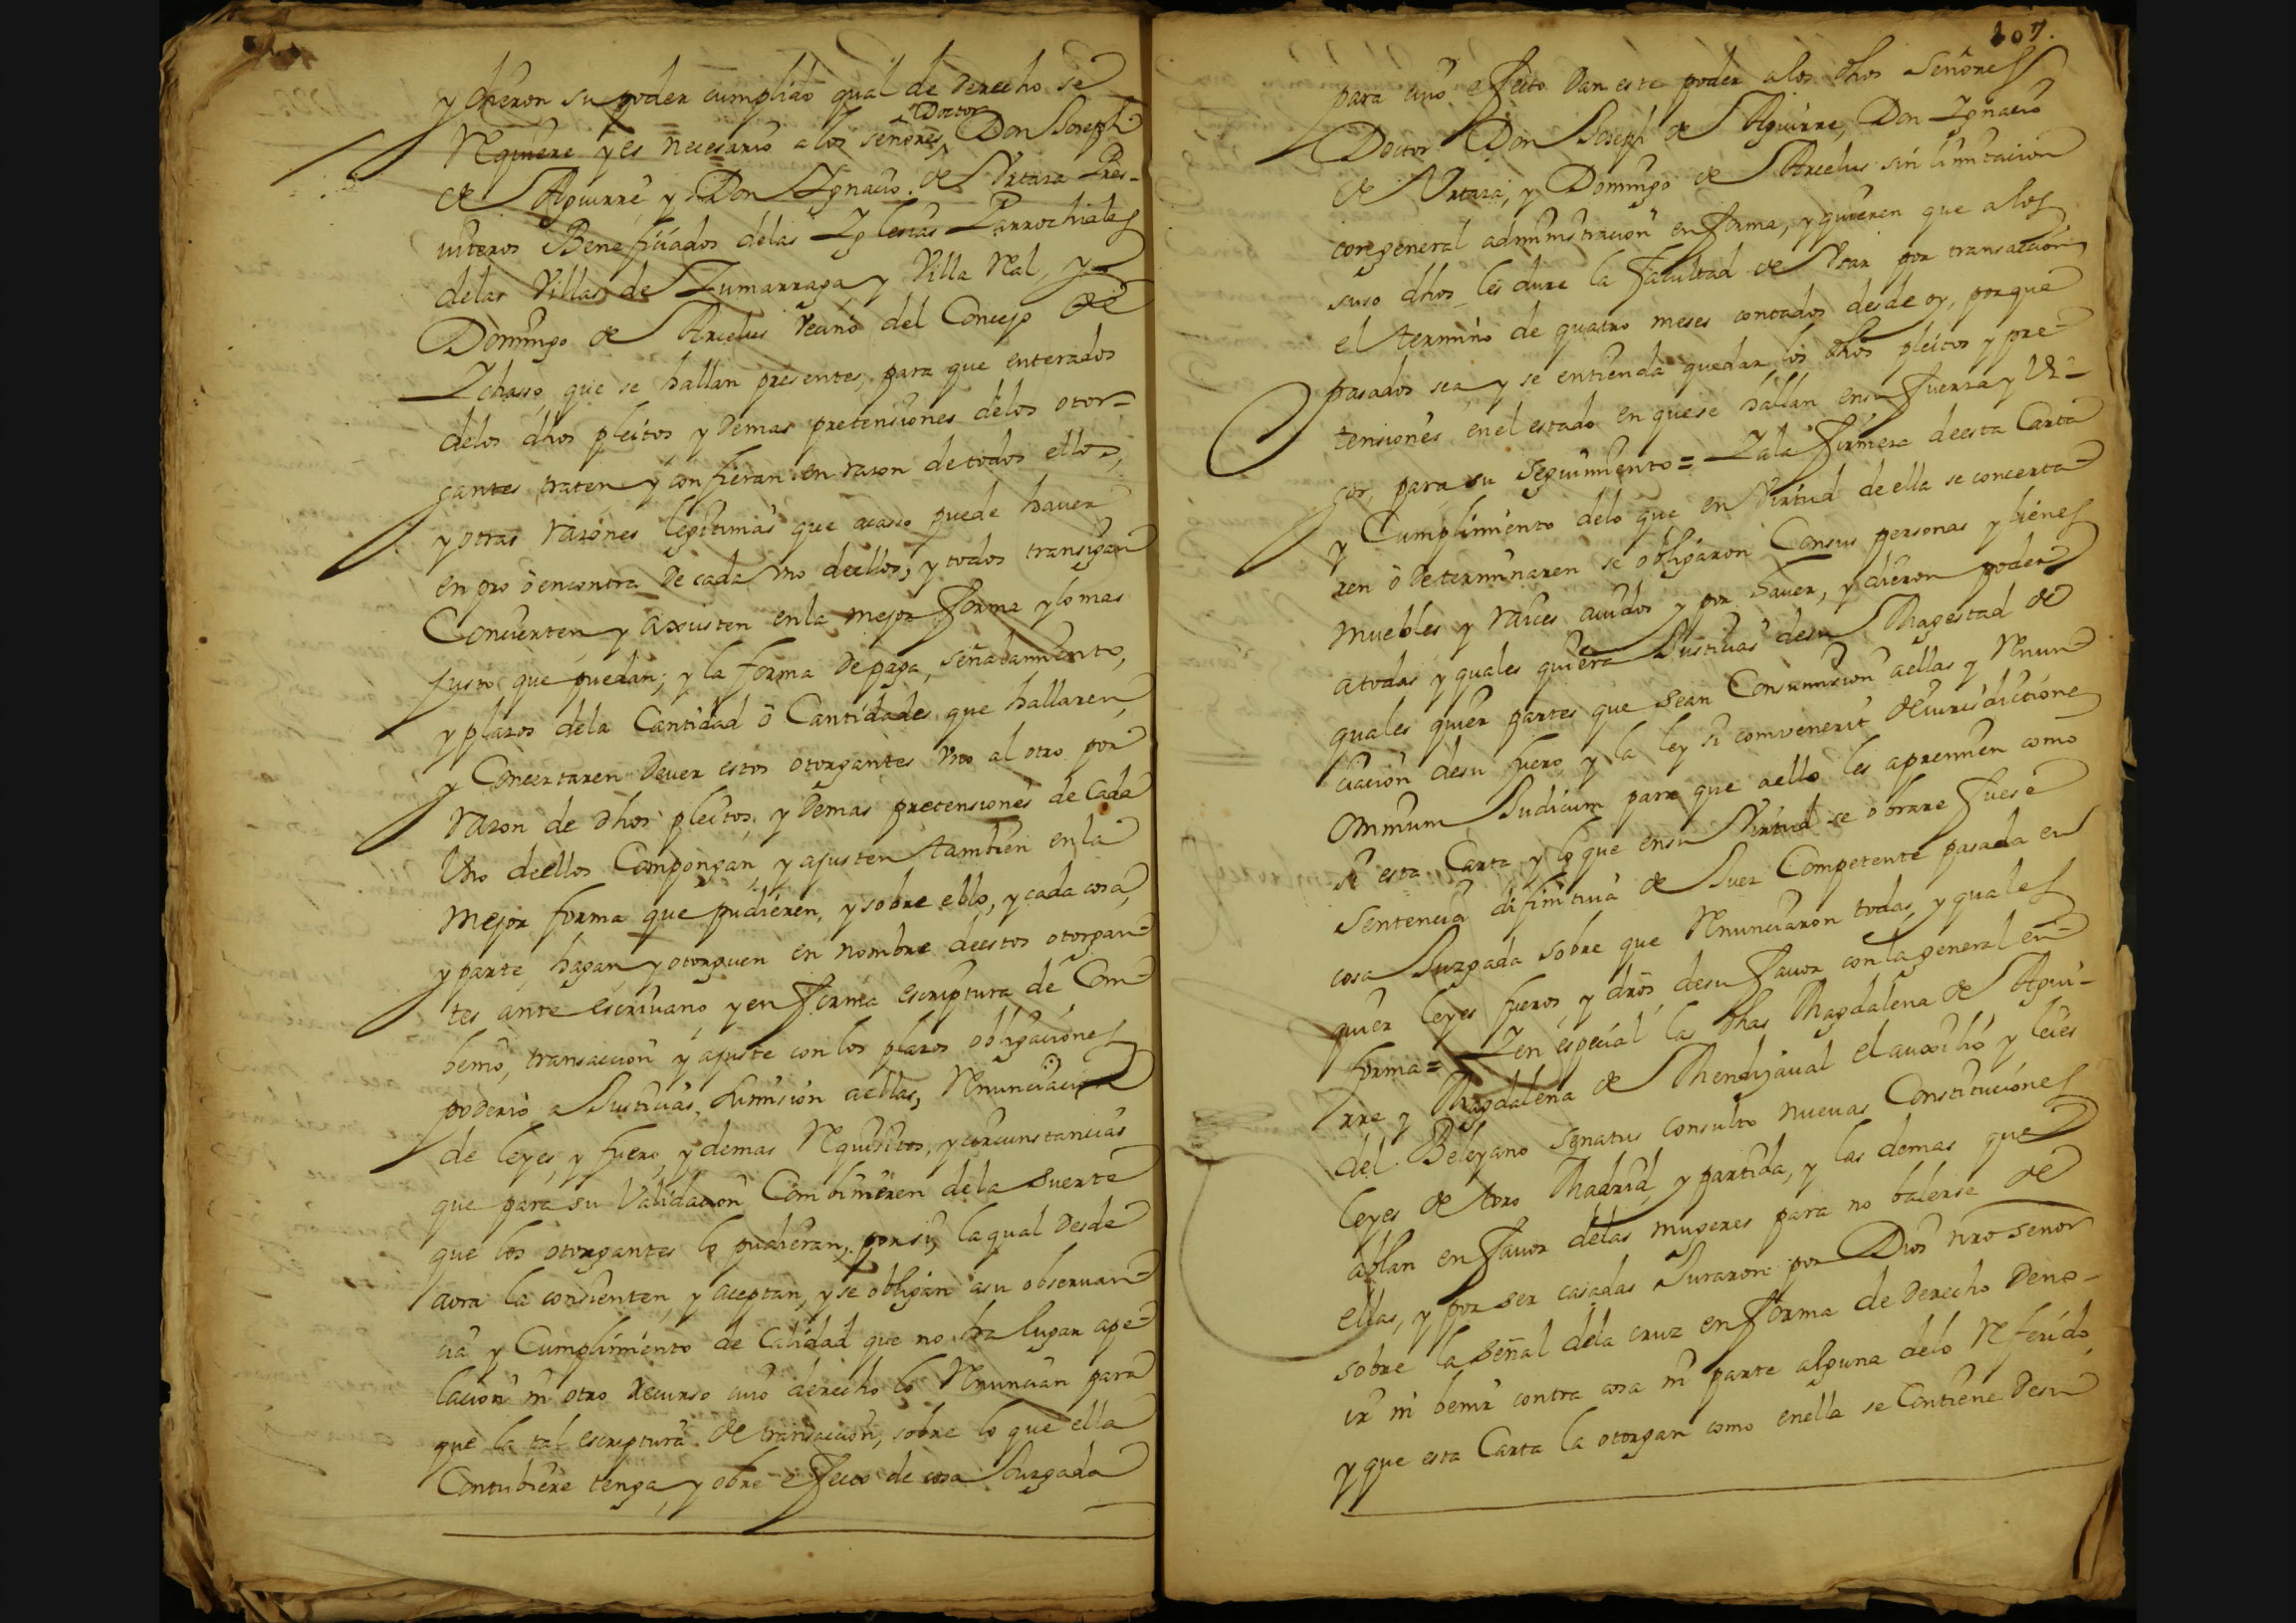 y dieron su poder cumplido qual de derecho se
Requiere y es necesario a los señores Doctor Don Joseph
de Aguirre y Don Ygnacio de Urtara Pres-
uiteros Beneficiados delas Yglesias Parrochiales
delas Villas de Zumarraga y Villa Real, y
Domingo de Arcelus Vecino del Concejo de
Ychasso que se hallan presentes, para que enterados
delos dhos pleitos y demas pretensiones delos otor=
gantes traten y confieran en razon de todos ellos,
y otras razones legitimas que acasso puede hauer
en pro ò en contra de cada vno deellos, y todos transigan
Concierten y axusten enla mejor forma y lo mas
justo que puedan; y la forma de paga, señadamiento,
y plazos dela Cantidad ò Cantidades que hallaren,
y Concertaren deuer estos otorgantes vno al otro por
razon de dhos pleitos, y demas pretensiones de Cada
Vno deellos Compongan, y ajusten tambien enla
mejor forma que pudieren, y sobre ello, y cada cosa,
y parte, hagan, y otorguen en nombre deestos otorgan-
tes ante escriuano y en forma escriptura de Com-
benio, transaccion y ajuste con los plazos obligaciones
poderio a Justicias, sumision aellas, Renunciacion
de leyes, y fuero, y demas Requisitos, y circunstancias
que para su Validacion Combinieren dela suerte
que los otorgantes lo pudieran, por si, la qual desde
aora la consienten, y aceptan, y se obligan asu obseruan-
cia y Cumplimiento de calidad que no ha lugar ape-
lacion ni otro recurso cuio derecho lo Renuncian para
que la tal escriptura de transaccion, sobre lo que ella
Contubiere tenga, y obre efecto de cosa Juzgada
107.
para cuio efecto dan este poder alos dhos Señores
Doctor Don Joseph de Aguirre, Don Ygnacio
de Urtara, y Domingo de Arcelus sin limitacion
con general administracion en forma, y quieren que alos
suso dhos les dure la facultad de Vsar por transaccion
el termino de quatro meses contados desde oy, porque
pasados sea, y se entienda quedar los dhos pleitos y pre-
tensiones enel estado en que se hallan ensu fuerza y Vi-
gor, para su seguimiento = Y ala firmeza deesta Carta
y Cumplimiento delo que en Virtud deella se concerta-
ren ò determinaren se obligaron Consus personas y bienes
muebles y raices auidos y por hauer, y dieron poder
atodas y quales quiera Justicias desu Magestad de
quales quier partes que sean Consumision aellas y Renun-
ciacion desu fuero, y la ley si conuenerit deiurisdictione
omnium Judicum para que aello les apremien como
si esta Carta y lo que ensu Virtud se obrare fuese
sentencia difinitiua de Juez Competente pasada en
cosa Juzgada sobre que Renunciaron todas, y quales
quier leyes fueros, y dros desu fauor con la general en
forma = Y en especial las dhas Magdalena de Agui-
rre y Magdalena de Mendijaual el auxilio y leies
del Beleyano Senatus consulto nueuas Constituciones
leyes de toro Madrid y partida, y las demas que
ablan en fauor delas mugeres para no balerse de
ellas, y por ser casadas Juraron por Dios nro señor
sobre la señal dela cruz en forma de derecho deno-
ir ni benir contra cosa ni parte alguna delo Referido
y que esta Carta la otorgan como enella se Contiene desu